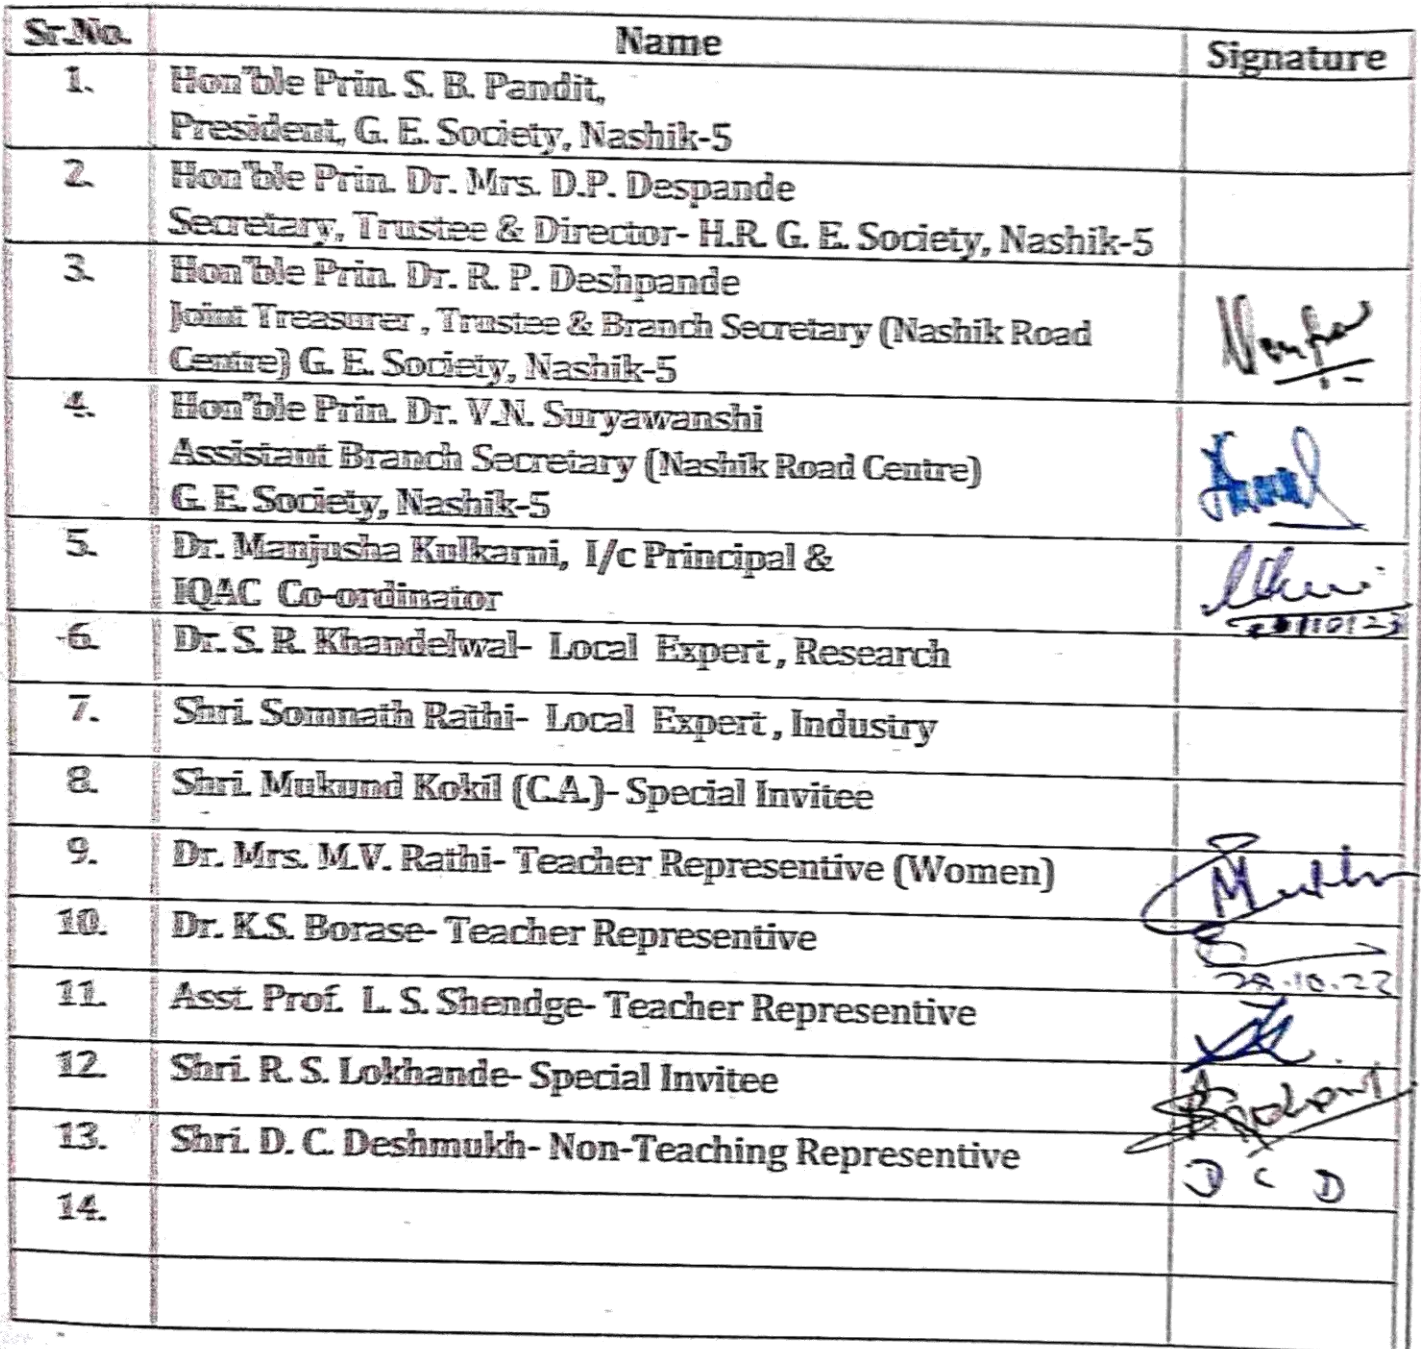 Sr.No. Name Signature
1. Hon'ble Prin. S. B. Pandit,
President, G. E. Society, Nashik-5
2. Hon'ble Prin. Dr. Mrs. D.P. Despande
Secretary, Trustee & Director- H.R. G. E. Society, Nashik-5
3. Hon'ble Prin. Dr. R. P. Deshpande
Joint Treasurer , Trustee & Branch Secretary (Nashik Road
Centre) G. E. Society, Nashik-5
4. Hon'ble Prin. Dr. V.N. Suryawanshi
Assistant Branch Secretary (Nashik Road Centre)
G. E. Society, Nashik-5
5. Dr. Manjusha Kulkarni, I/c Principal &
IQAC Co-ordinator
6. Dr. S. R. Khandelwal- Local Expert , Research
7. Shri. Somnath Rathi- Local Expert , Industry
8. Shri. Mukund Kokil (C.A.)- Special Invitee
9. Dr. Mrs. M.V. Rathi- Teacher Representive (Women)
10. Dr. K.S. Borase- Teacher Representive
11. Asst. Prof. L. S. Shendge- Teacher Representive
12. Shri. R. S. Lokhande- Special Invitee
13. Shri. D. C. Deshmukh- Non-Teaching Representive D C D
14.